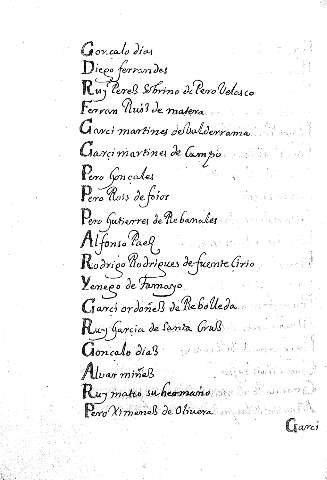 Gonçalo dias
Diego ferrandes
Ruy Pereß sobrino de Pero Velasco
Ferran Ruiß de matera
Garci martines de Valderrama
Garçi martines de Campo
Pero Gonçales
Pero Rois de foios
Pero Gutierres de Rebanales
Alfonso Paeß
Rodrigo Rodrigues de fuente Cirio
Yenego de Tamayo
Garci ordoñeß de Rebolleda
Ruy Garcia de Santa Cruß
Gonçalo diaß
Alvar miñeß
Ruy mateo su hermano
Pero Ximeneß de Olivera
Garci